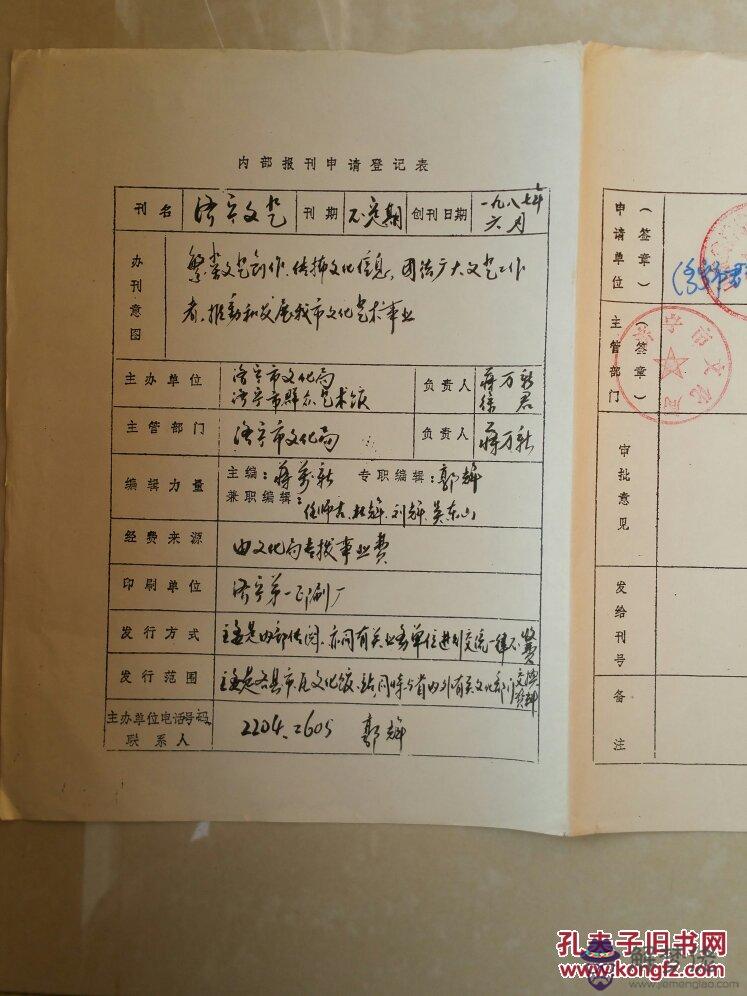 内部报刊申请登记表
刊名 济宁文艺 刊期 不定期 创刊日期 一九八七年六月
办刊意图 繁荣文艺创作、传播文化信息，团结广大文艺工作
者，推动和发展我市文化艺术事业
主办单位 济宁市文化局 负责人 蒋万新
济宁市群众艺术馆 徐君
主管部门 济宁市文化局 负责人 蒋万新
编辑力量 主编：蒋万新 专职编辑：郭辉
兼职编辑：
任师吉、杜辉、刘辉、吴东山
经费来源 由文化局专拨事业费
印刷单位 济宁第一印刷厂
发行方式 主要是内部传阅，亦同有关业务单位进行交流一律不收费
发行范围 主要是各县市、区文化馆、站同时与省内外有关文化部门交流
主办单位电话号码 2204、2605 郭辉
联系人
申请单位（签章）
主管部门（签章）
审批意见
发给刊号
备注
孔夫子旧书网
www.kongfz.com
解梦佬
www.jiemenglao.com